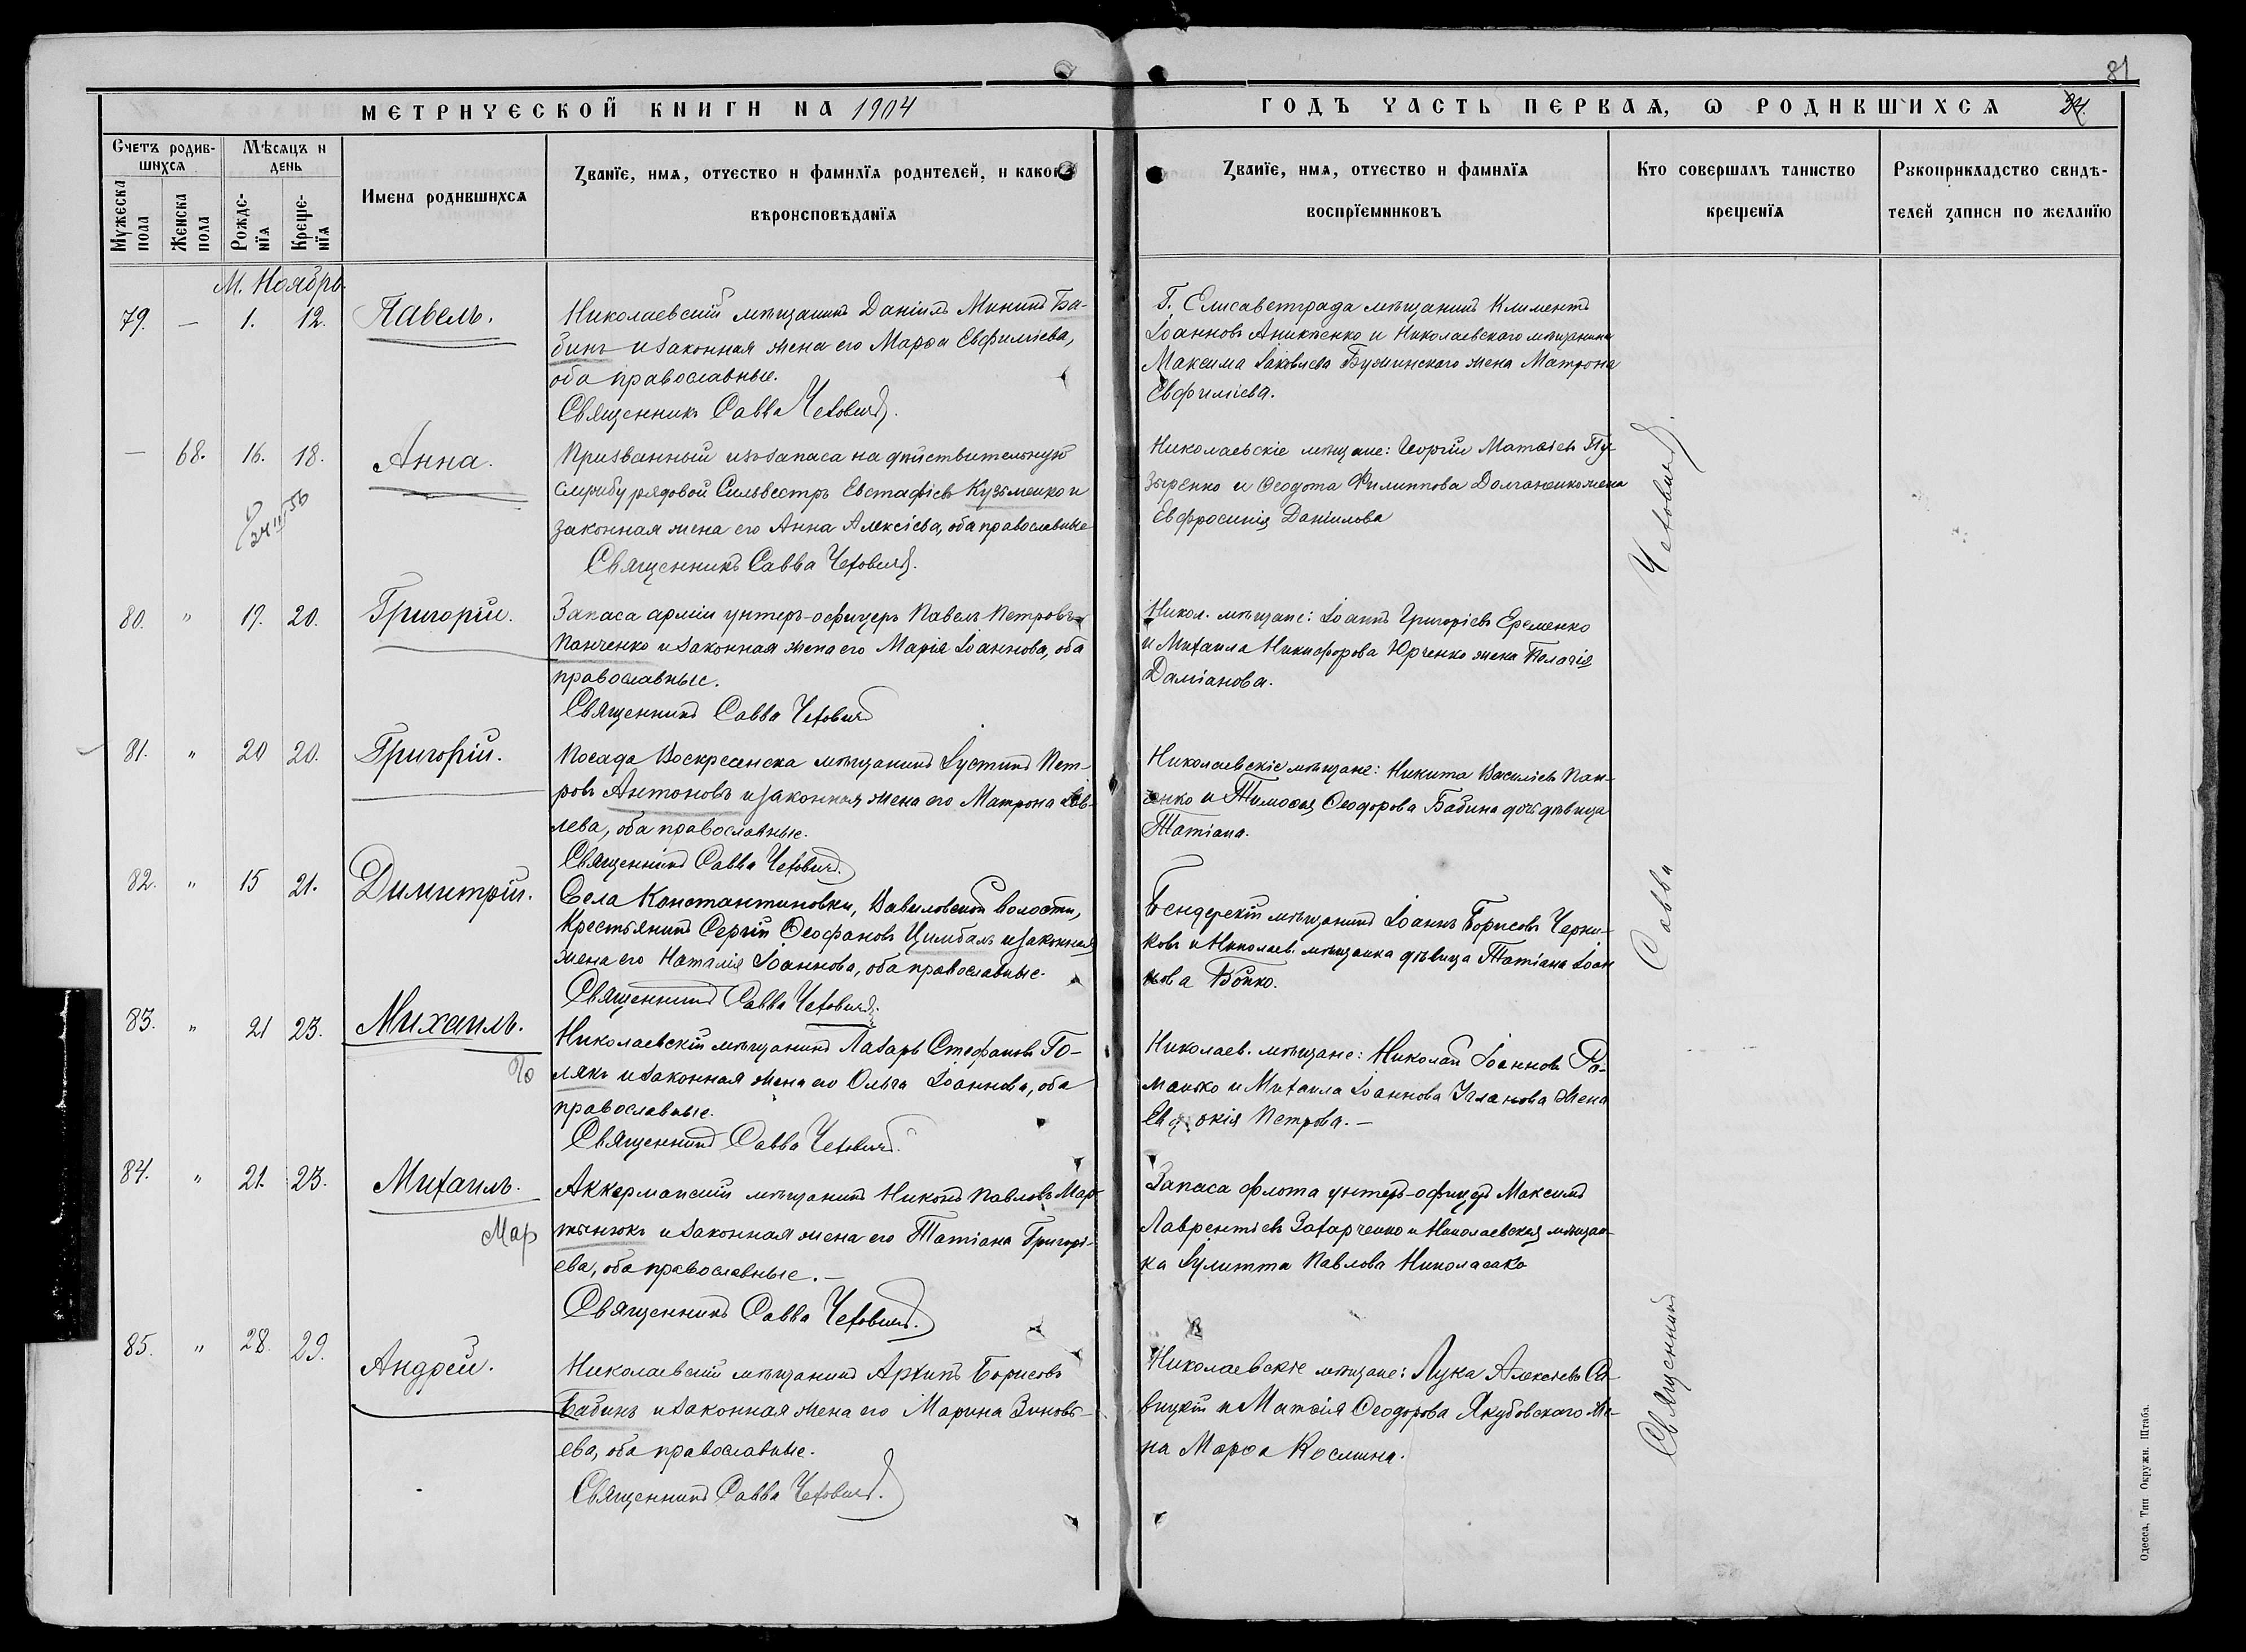 81
МЕТРИЧЕСКОЙ КНИГИ НА 1904
ГОДЪ ЧАСТЬ ПЕРВАЯ, Ѡ РОДИВШИХСЯ
Счетъ родив-
шихся
Мѣсяцъ и
день
Мужеска
пола
Женска
пола
Рожде-
нїя
Креще-
нїя
Имена родившихся
Званїе, имя, отчество и фамилїя родителей, и какого
вѣроисповѣданїя
Званїе, имя, отчество и фамилїя
воспрїемниковъ
Кто совершалъ таинство
крещенїя
Рукоприкладство свидѣ-
телей записи по желанїю
М. Ноябрь.
79. — 1. 12. Павелъ.
Николаевскій мѣщанинъ Даніилъ Мининъ Ба-
бинъ и законная жена его Марѳа Евфиміева,
оба православные.
Священникъ Савва Чеховичъ.
Г. Елисаветграда мѣщанинъ Климентъ
Іоанновъ Аникѣенко и Николаевскаго мѣщанина
Максима Іаковлева Бужинскаго жена Матрона
Евфиміева.
— 68. 16. 18. Анна.
Призванный изъ запаса на дѣйствительную
службу рядовой Сильвестръ Евстафіевъ Кузьменко и
законная жена его Анна Алексіева, оба православные
Священникъ Савва Чеховичъ.
Николаевскіе мѣщане: Георгій Матвіевъ Пу-
зыренко и Ѳеодота Филиппова Долженко жена
Евфросинія Даніилова
80. " 19. 20. Григорій.
Запаса арміи унтеръ-офицеръ Павелъ Петровъ
Панченко и законная жена его Марія Іоаннова, оба
православные.
Священникъ Савва Чеховичъ
Никол. мѣщане: Іоаннъ Григоріевъ Еременко
и Михаила Никифорова Юрченко жена Пелагія
Даміанова.
81. " 20 20. Григорій.
Посада Воскресенска мѣщанинъ Іустинъ Пет-
ровъ Антоновъ и законная жена его Матрона Іов-
лева, оба православные.
Священникъ Савва Чеховичъ.
Николаевскіе мѣщане: Никита Василіевъ Пан-
ченко и Тимоѳея Ѳеодорова Бабина дочь дѣвица
Татіана.
82. " 15 21. Димитрій.
Села Константиновки, Вавиловской волости,
крестьянинъ Сергій Ѳеофановъ Цимбалъ и законная
жена его Наталія Іоаннова, оба православные.
Священникъ Савва Чеховичъ.
Бендерскій мѣщанинъ Іоаннъ Борисовъ Черни-
ковъ и Николаев. мѣщанка дѣвица Татіана Іоан
нова Бойко.
83. " 21 23. Михаилъ.
Го
Николаевскій мѣщанинъ Лазарь Стефановъ Го-
лякъ и законная жена его Ольга Іоаннова, оба
православные.
Священникъ Савва Чеховичъ.
Николаев. мѣщане: Николай Іоанновъ Ро-
манко и Михаила Іоаннова Уланова жена
Евдокія Петрова. —
84. " 21. 23. Михаилъ.
Мар
Аккерманскій мѣщанинъ Никонъ Павловъ Мар-
тынюкъ и законная жена его Татіана Григорі-
ева, оба православные. —
Священникъ Савва Чеховичъ.
Запаса флота унтеръ-офицеръ Максимъ
Лаврентіевъ Захарченко и Николаевская мѣщан-
ка Іулитта Павлова
85. " 28. 29. Андрей.
Николаевскій мѣщанинъ Архипъ Борисовъ
Бабинъ и законная жена его Марина Зиновь-
ева, оба православные.
Священникъ Савва Чеховичъ.
Николаевскіе мѣщане: Лука Алексіевъ Са-
вицкій и Матѳія Ѳеодорова Якубовскаго же-
на Марѳа Космина.
Священникъ Савва Чеховичъ.
Одесса, Тип Окружн. Штаба.